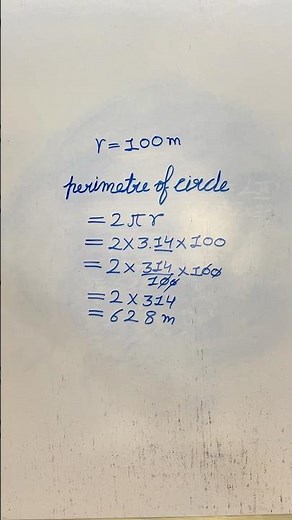 r = 100 m
perimetre of circle
= 2 π r
= 2 × 3.14 × 100
= 2 × 314/100 × 100
= 2 × 314
= 628 m